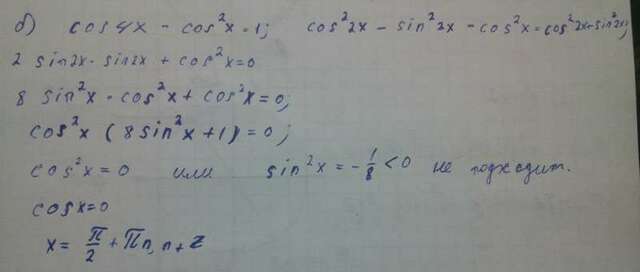 б) cos4x - cos²x = 1; cos²2x - sin²2x - cos²x = cos²2x + sin²2x;
2 sin2x · sin2x + cos²x = 0
8 sin²x · cos²x + cos²x = 0;
cos²x (8 sin²x + 1) = 0;
cos²x = 0 или sin²x = -1/8 < 0 не подходит.
cosx = 0
x = π/2 + πn, n + Z